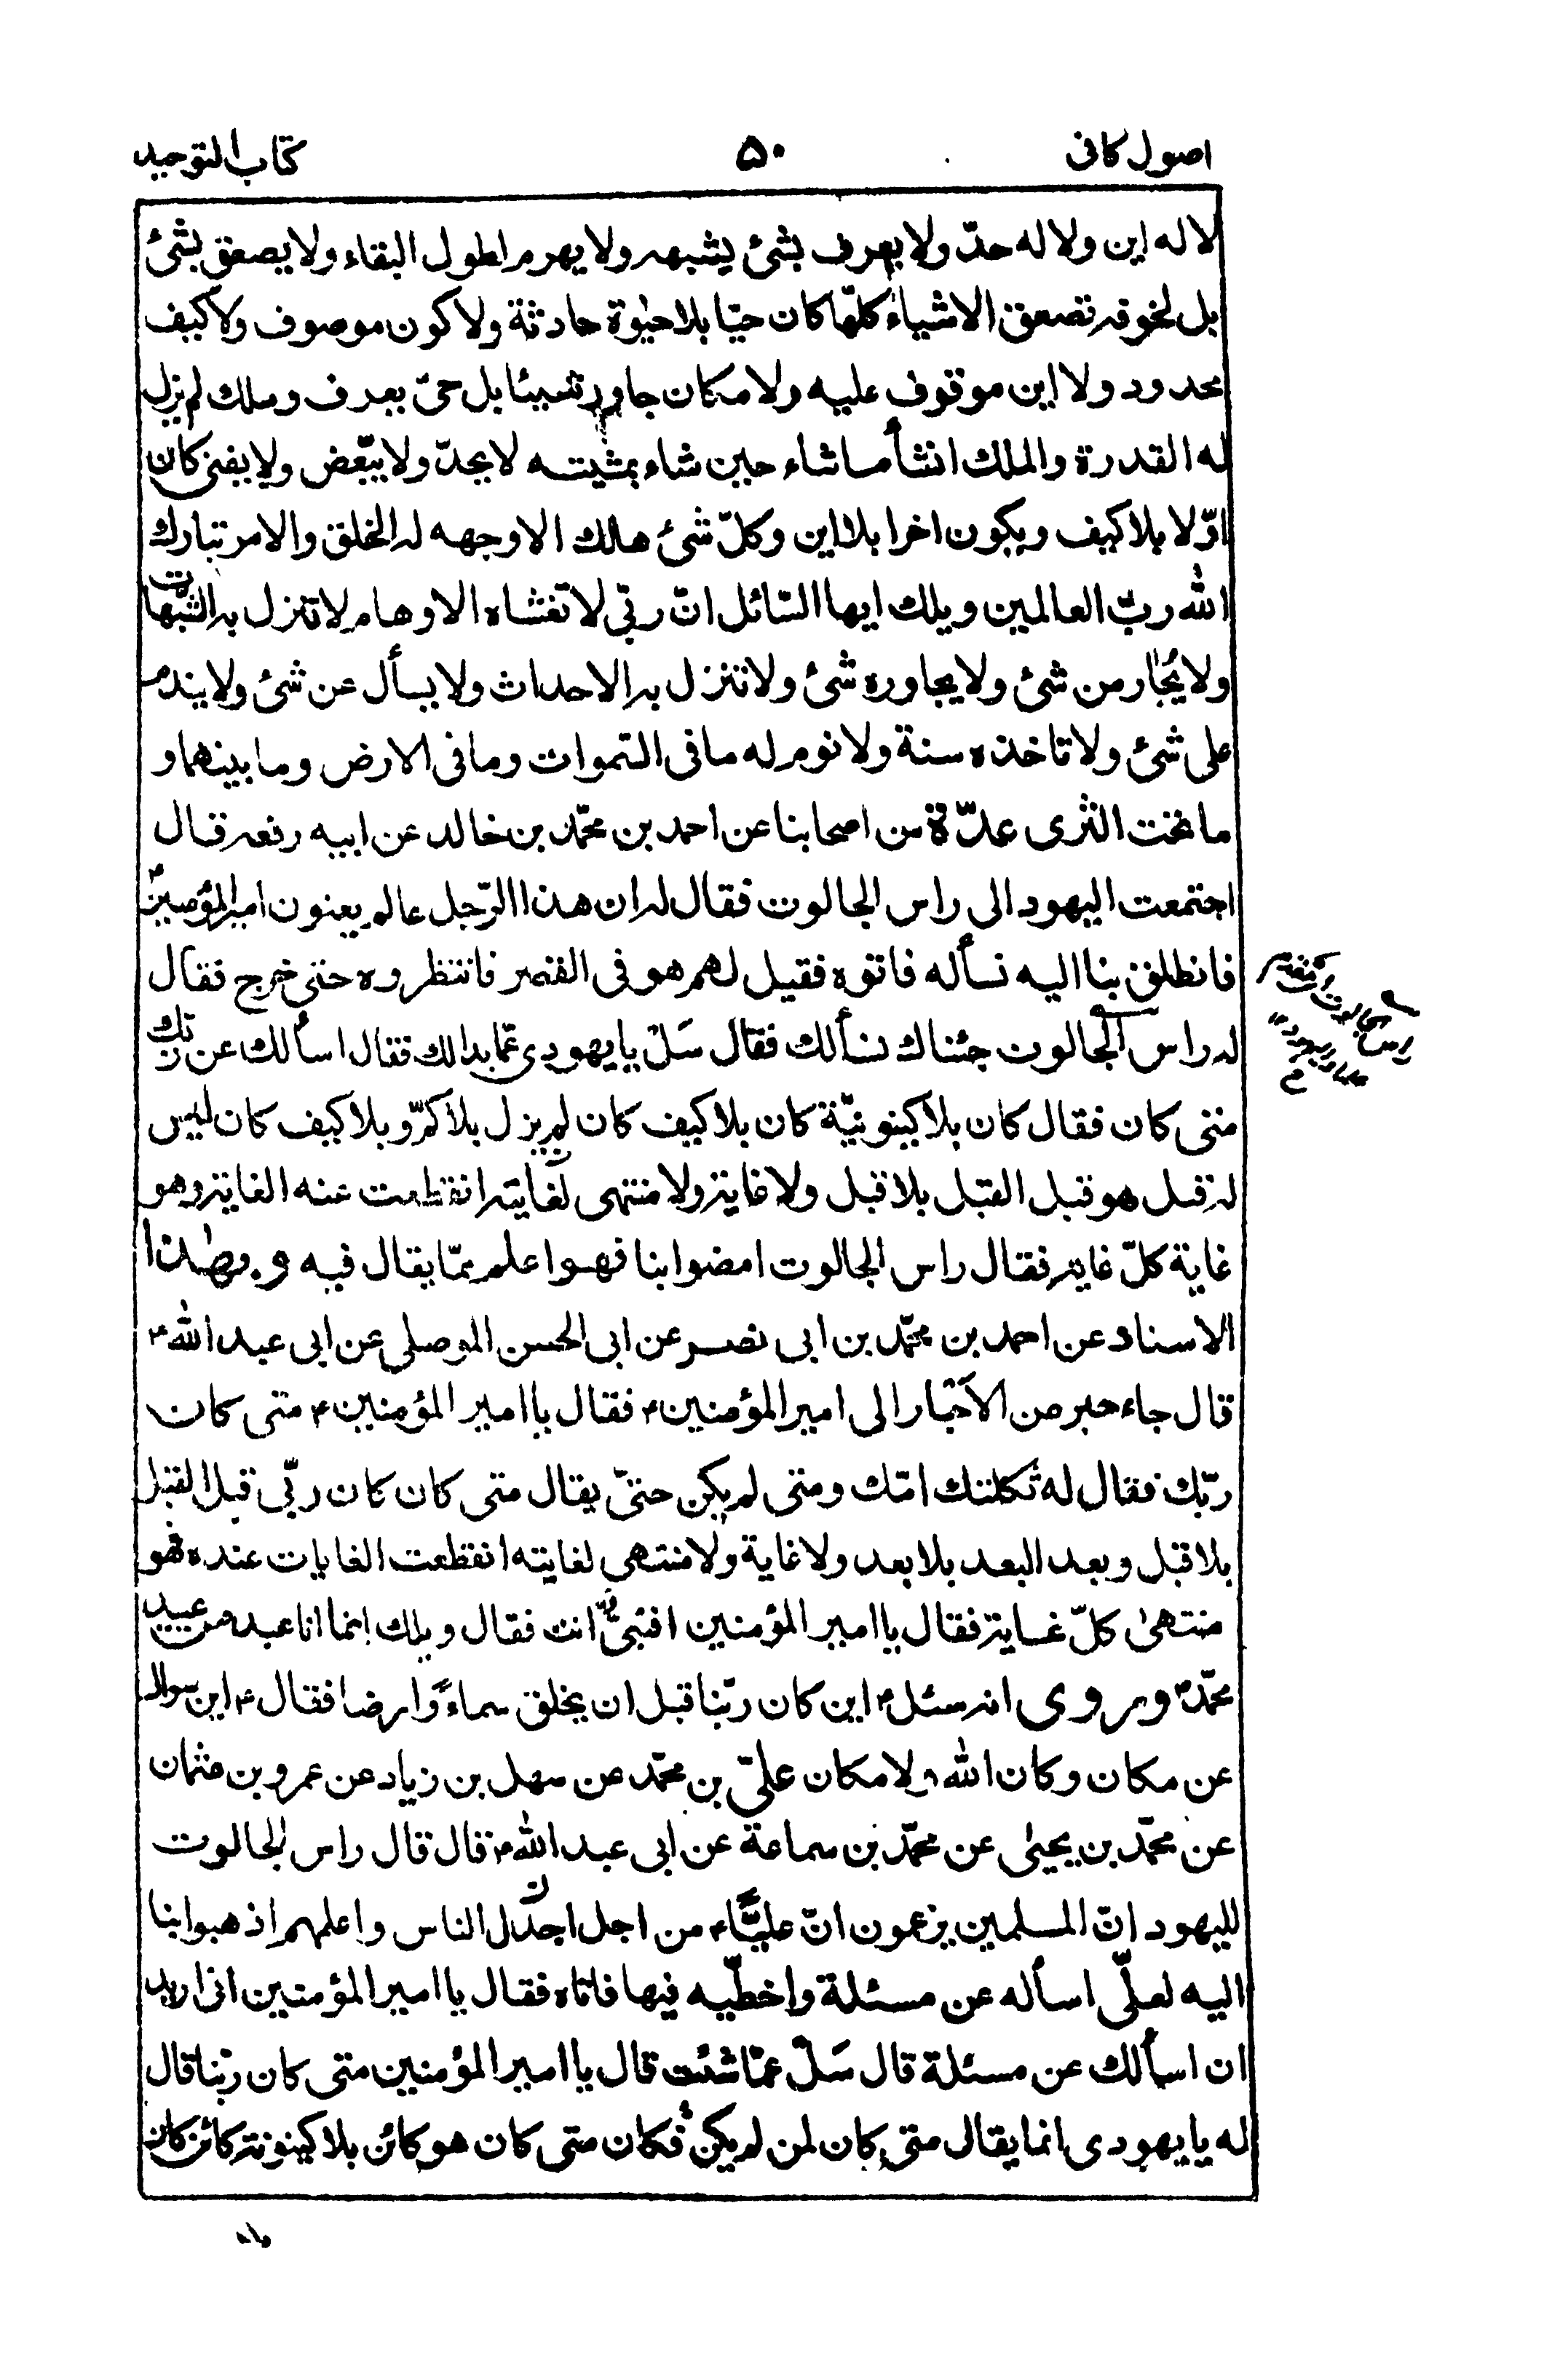 اصول كافى ۵۰ كتاب التوحيد
لا له اين ولا له حدّ ولا يعرف بشئ يشبهه ولا يهرم لطول البقاء ولا يصعق بشئ
بل لخوفه تصعق الاشياء كلّها كان حيّا بلا حيٰوة حادثة ولا كون موصوف ولا كيف
محدود ولا اين موقوف عليه ولا مكان جاور شيئا بل حىّ يعرف وملك لم يزل
له القدرة والملك انشأ ما شاء حين شاء بمشيته لا يحدّ ولا يبّعض ولا يفنى كان
اوّلا بلا كيف ويكون اخرا بلا اين وكلّ شئ هالك الا وجهه له الخلق والامر تبارك
الله ربّ العالمين ويلك ايها السّائل انّ ربّى لا تغشاه الاوهام لا تنزل به الشّبهات
ولا يُجار من شئ ولا يجاوره شئ ولا تنزل به الاحداث ولا يسأل عن شئ ولا يندم
على شئ ولا تاخذه سنة ولا نوم له ما فى السّموات وما فى الارض وما بينهما و
ما تحت الثرى عدّة من اصحابنا عن احمد بن محمّد بن خالد عن ابيه رفعه قال
اجتمعت اليهود الى راس الجالوت فقال له ان هذا الرّجل عالم يعنون امير المؤمنين؏
فانطلق بنا اليه نسأله فاتوه فقيل لهم هو فى القصر فانتظروه حتى خرج فقال
له راس الجالوت جئناك نسألك فقال سَلْ يا يهودى عمّا بدا لك فقال اسألك عن ربّك
متى كان فقال كان بلا كينونيّة كان بلا كيف كان لم يزل بلا كمّ وبلا كيف كان ليس
له قبل هو قبل القبل بلا قبل ولا غاية ولا منتهى لغايته انقطعت عنه الغاية وهو
غاية كلّ غاية فقال راس الجالوت امضوا بنا فهو اعلم ممّا يقال فيه وبهٰذا
الاسناد عن احمد بن محمّد بن ابى نصر عن ابى الحسن الموصلى عن ابى عبد الله ؏
قال جاء حبر من الاَحْبار الى امير المؤمنين ؏ فقال يا امير المؤمنين ؏ متى كان
ربّك فقال له ثكلتك امّك ومتى لم يكن حتىّ يقال متى كان كان ربّى قبل القبل
بلا قبل وبعد البعد بلا بعد ولا غاية ولا منتهى لغايته انقطعت الغايات عنده فهو
منتهىٰ كلّ غاية فقال يا امير المؤمنين افنبىٌّ انت فقال ويلك انما انا عبد من عبيد
محمّد ؐ وروى انه سئل ؏ اين كان ربّنا قبل ان يخلق سماءً وارضا فقال ؏ اين سوال
عن مكان وكان الله ولا مكان علىّ بن محمّد عن سهل بن زياد عن عمرو بن عثمان
عن محمّد بن يحيىٰ عن محمّد بن سماعة عن ابى عبد الله ؏ قال قال راس الجالوت
لليهود انّ المسلمين يزعمون انّ عليًّا ؏ من اجل اجدل الناس واعلمهم اذهبوا بنا
اليه لعلّى اسأله عن مسئلة واخطّيه فيها فاتاه فقال يا امير المؤمنين انى اريد
ان اسألك عن مسئلة قال سَلْ عمّا شئت قال يا امير المؤمنين متى كان ربّنا قال
له يا يهودى انما يقال متى كان لمن لم يكن فكان متى كان هو كائن بلا كينونة كائن كان